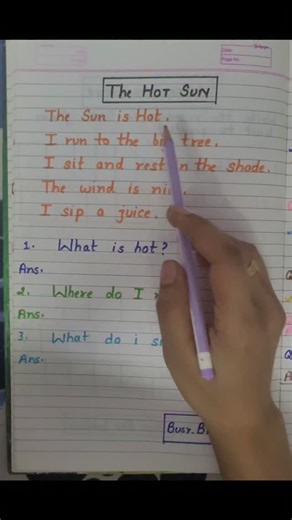 The Hot Sun
The Sun is Hot.
I run to the tree.
I sit and rest in the shade.
The wind is
I sip a juice.
1. What is hot?
Ans.
2. Where do I
Ans.
3. What do i
Ans.
Busy.